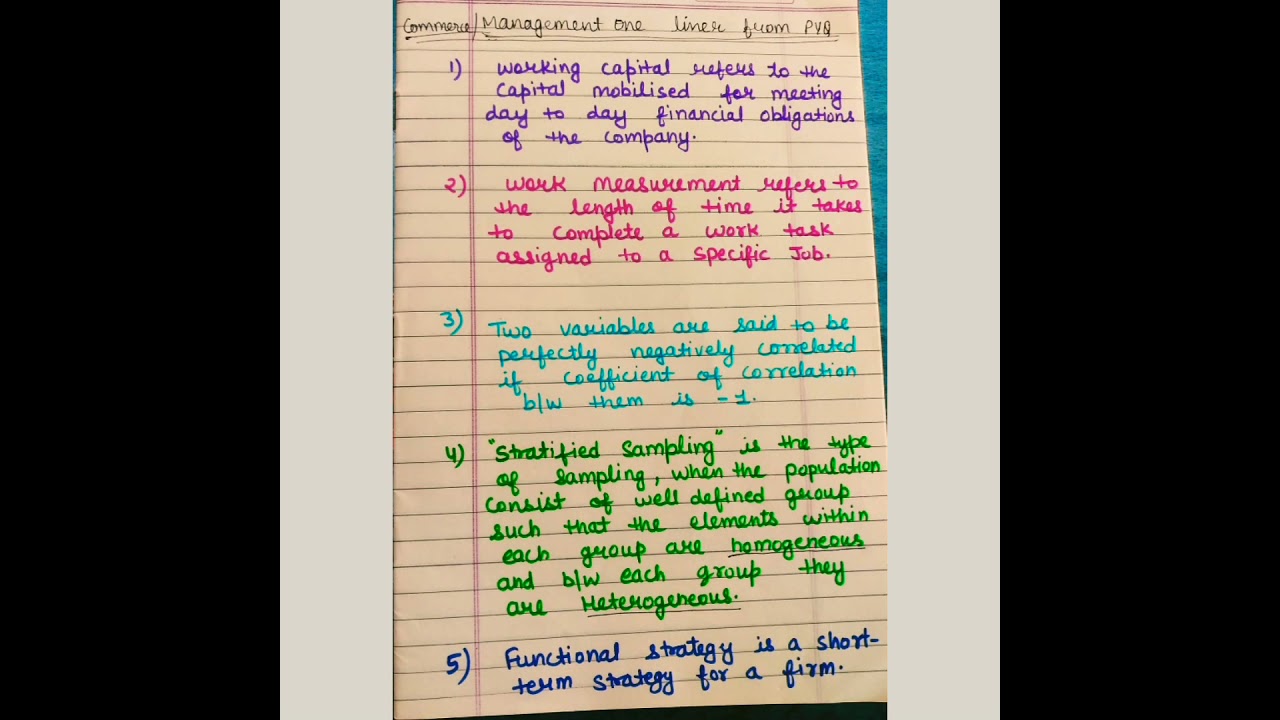 Commerce/Management one liner from PYQ
1) working capital refers to the
capital mobilised for meeting
day to day financial obligations
of the company.
2) work measurement refers to
the length of time it takes
to complete a work task
assigned to a specific Job.
3) Two variables are said to be
perfectly negatively correlated
if coefficient of correlation
b/w them is -1.
4) "Stratified Sampling" is the type
of sampling, when the population
consist of well defined group
such that the elements within
each group are homogeneous
and b/w each group they
are Heterogeneous.
5) Functional strategy is a short-
term strategy for a firm.